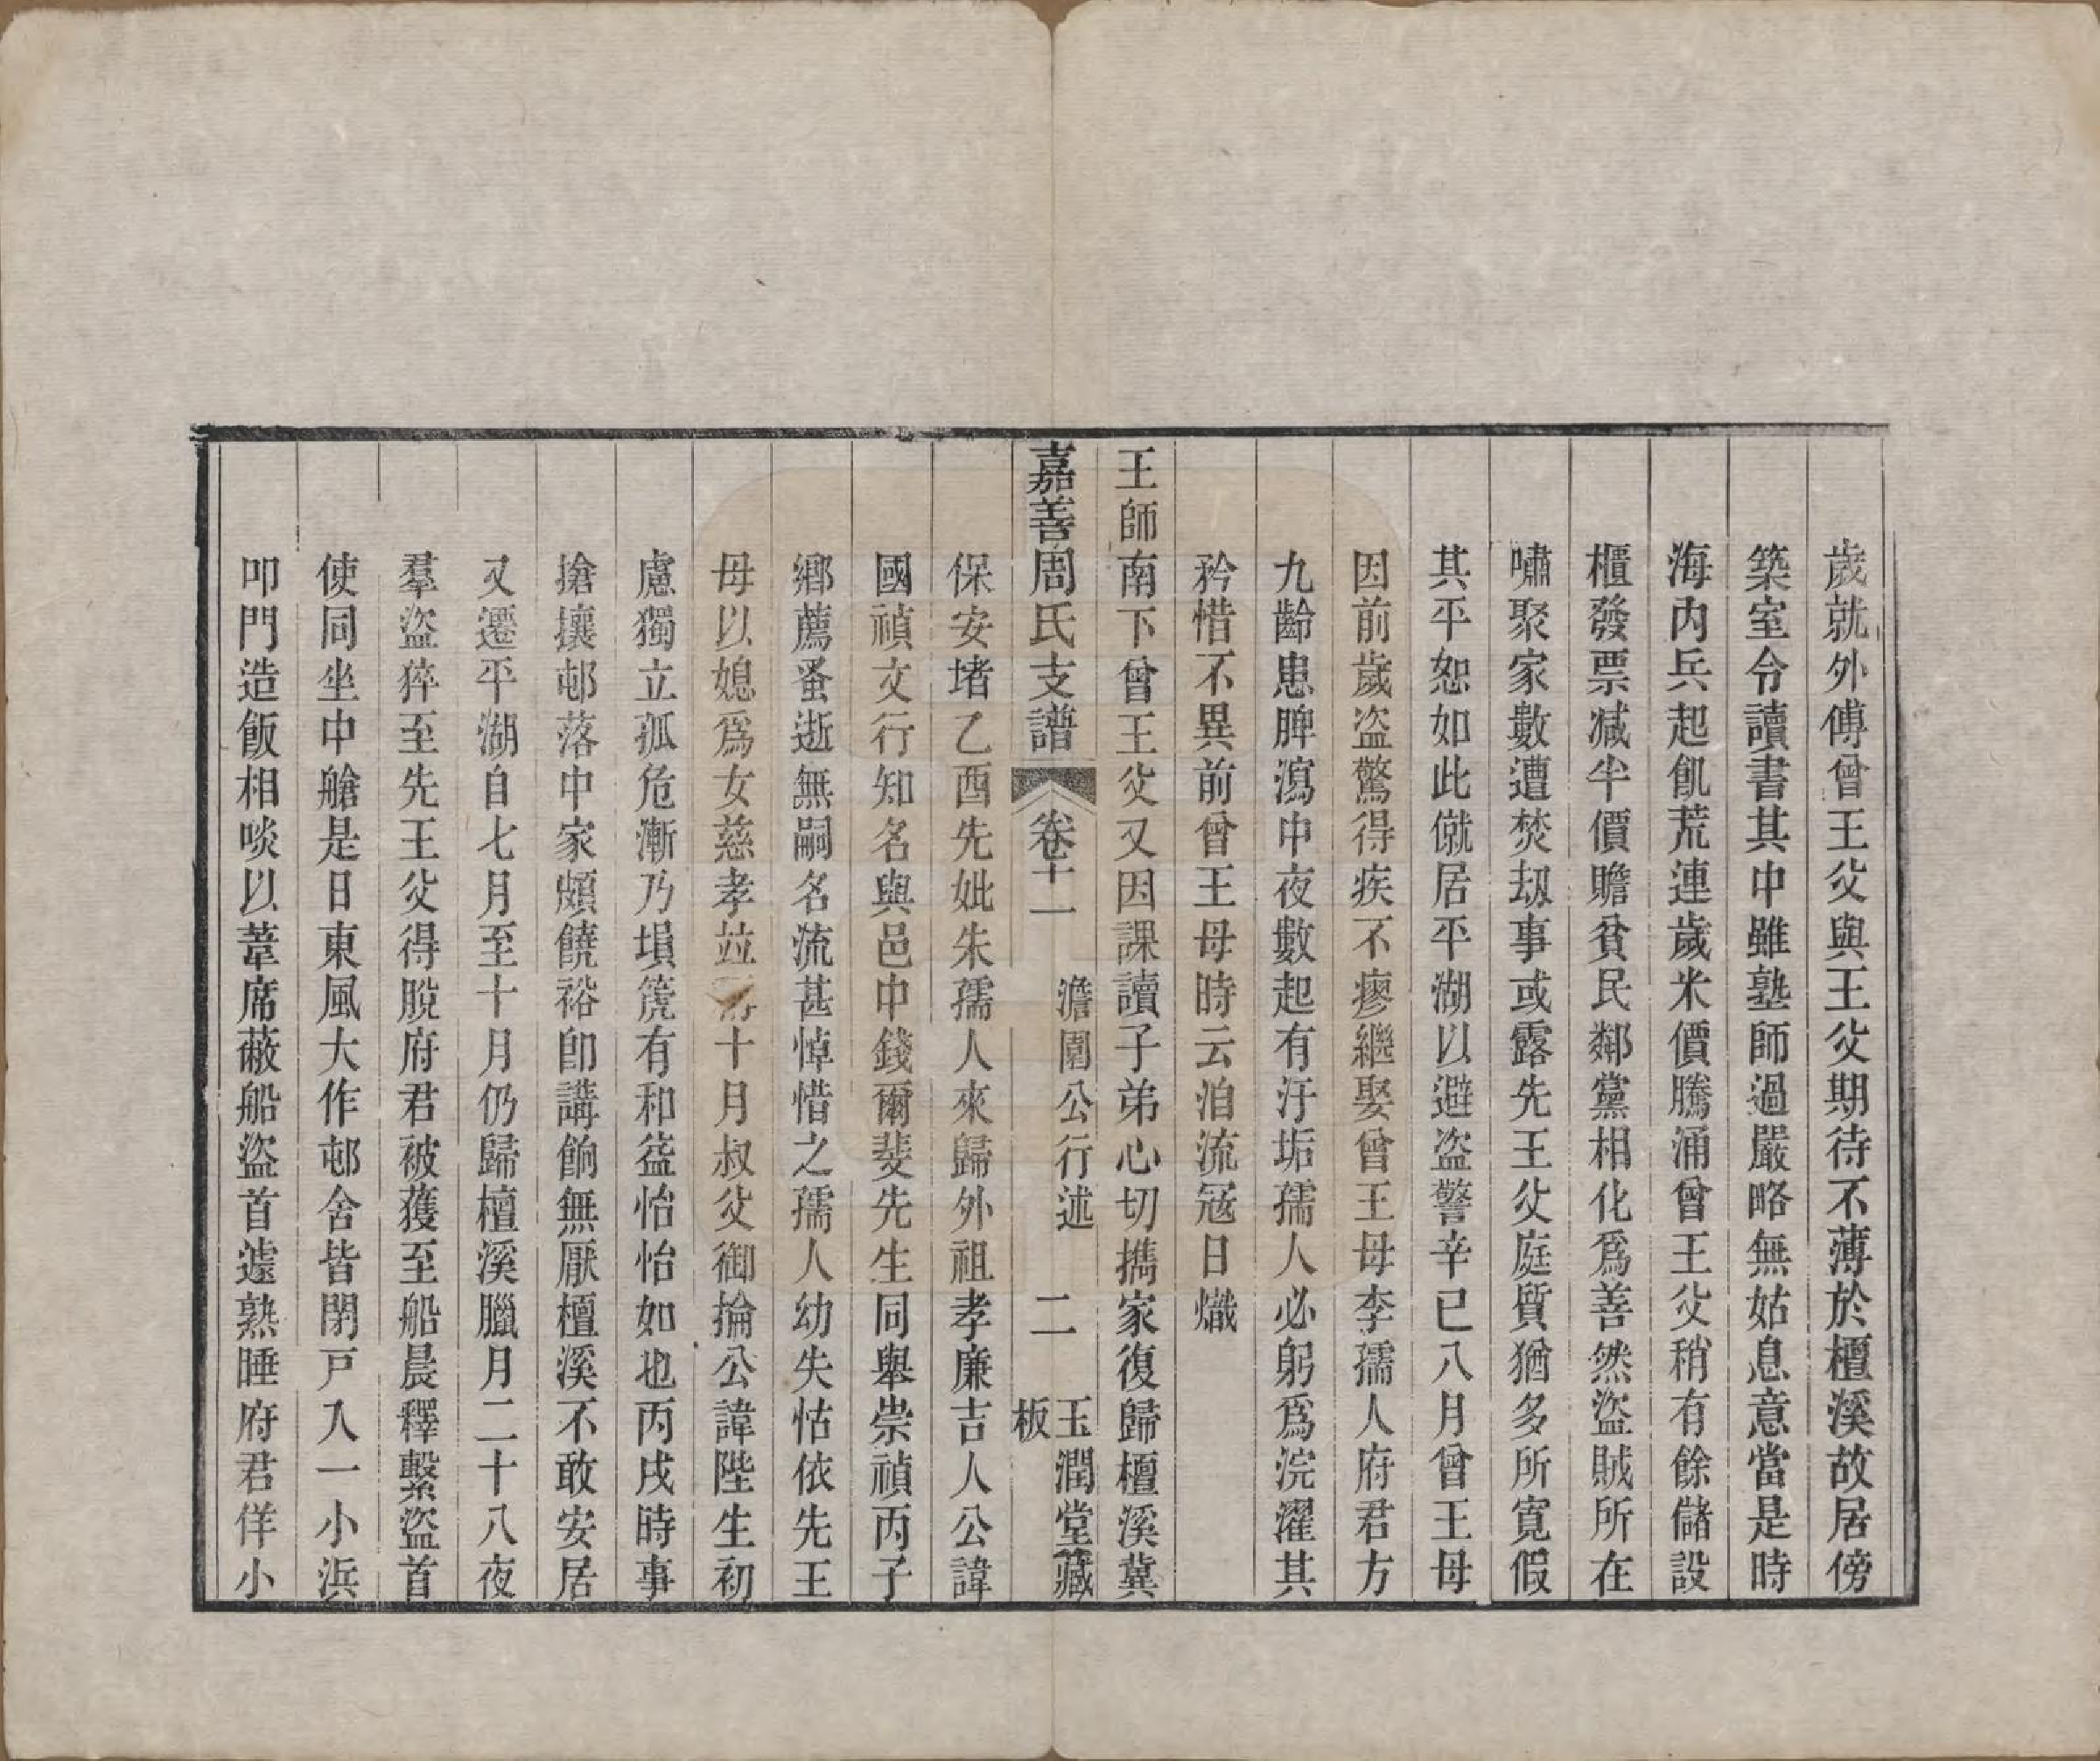 歲就外傅曾王父與王父期待不薄於檀溪故居傍
築室令讀書其中雖塾師過嚴略無姑息意當是時
海內兵起飢荒連歲米價騰涌曾王父稍有餘儲設
櫃發票減半價贍貧民鄰黨相化爲善然盜賊所在
嘯聚家數遭焚刼事或露先王父庭質猶多所寬假
其平恕如此僦居平湖以避盜警辛巳八月曾王母
因前歲盜驚得疾不瘳繼娶曾王母李孺人府君方
九齡患脾瀉中夜數起有汙垢孺人必躬爲浣濯其
矜惜不異前曾王母時云洎流寇日熾
王師南下曾王父又因課讀子弟心切擕家復歸檀溪冀
嘉善周氏支譜 卷十一 澹園公行述 二 玉潤堂藏板
保安堵乙酉先妣朱孺人來歸外祖孝廉吉人公諱
國禎文行知名與邑中錢爾斐先生同舉崇禎丙子
鄉薦蚤逝無嗣名流甚悼惜之孺人幼失怙依先王
母以媳爲女慈孝竝十月叔父御掄公諱陛生初
慮獨立孤危漸乃塤篪有和益怡怡如也丙戌時事
搶攘邨落中家頗饒裕卽講餉無厭檀溪不敢安居
又遷平湖自七月至十月仍歸檀溪臘月二十八夜
羣盜猝至先王父得脫府君被獲至船晨釋繫盜首
使同坐中艙是日東風大作邨舍皆閉戸入一小浜
叩門造飯相啖以葦席蔽船盜首遽熟睡府君佯小